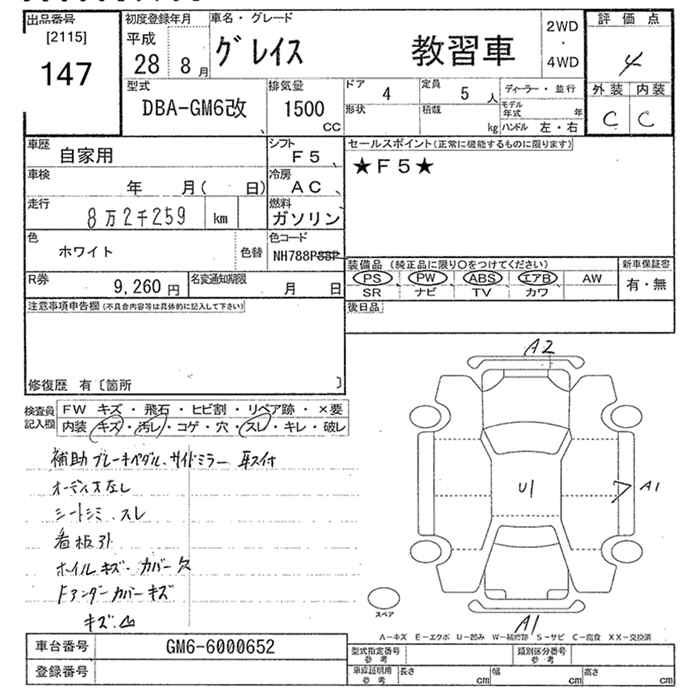 出品番号
[2115]
147
初度登録年月
平成
28 8月
車名・グレード
グレイス 教習車
2WD
・
4WD
評価点
4
外装 内装
C C
型式
DBA-GM6改
排気量
1500
CC
ドア 4
定員 5 人
形状
積載 kg
ディーラー・並行
モデル年式 年
ハンドル 左・右
車歴 自家用
シフト F5
車検 年 月( 日)
冷房 AC
走行 8万2千259 km
燃料 ガソリン
色 ホワイト 色替
色コード NH788P88P
R券 9,260円
名変通知期限 月 日
セールスポイント(正常に機能するものに限ります)
★F5★
装備品(純正品に限り○をつけてください)
PS PW ABS エアB AW
SR ナビ TV カワ
新車保証書
有・無
後日品
注意事項申告欄(不具合内容等は具体的に記入して下さい)
修復歴 有〔箇所 〕
検査員記入欄
FW キズ・飛石・ヒビ割・リペア跡・×要
内装 キズ・汚レ・コゲ・穴・スレ・キレ・破レ
補助ブレーキペダル、サイドミラー 耳穴付
オーディオなし
シートシミ スレ
看板引
ホイルキズ・カバー欠
Fアンダーカバーキズ
キズ、凹
A2
A1
U1
A1
スペア
A-キズ E-エクボ U-凹み W-補修跡 S-サビ C-腐食 XX-交換済
車台番号 GM6-6000652
登録番号
型式指定番号
参考
類別区分番号
参考
車庫証明用
参考
長さ cm
幅 cm
高さ cm